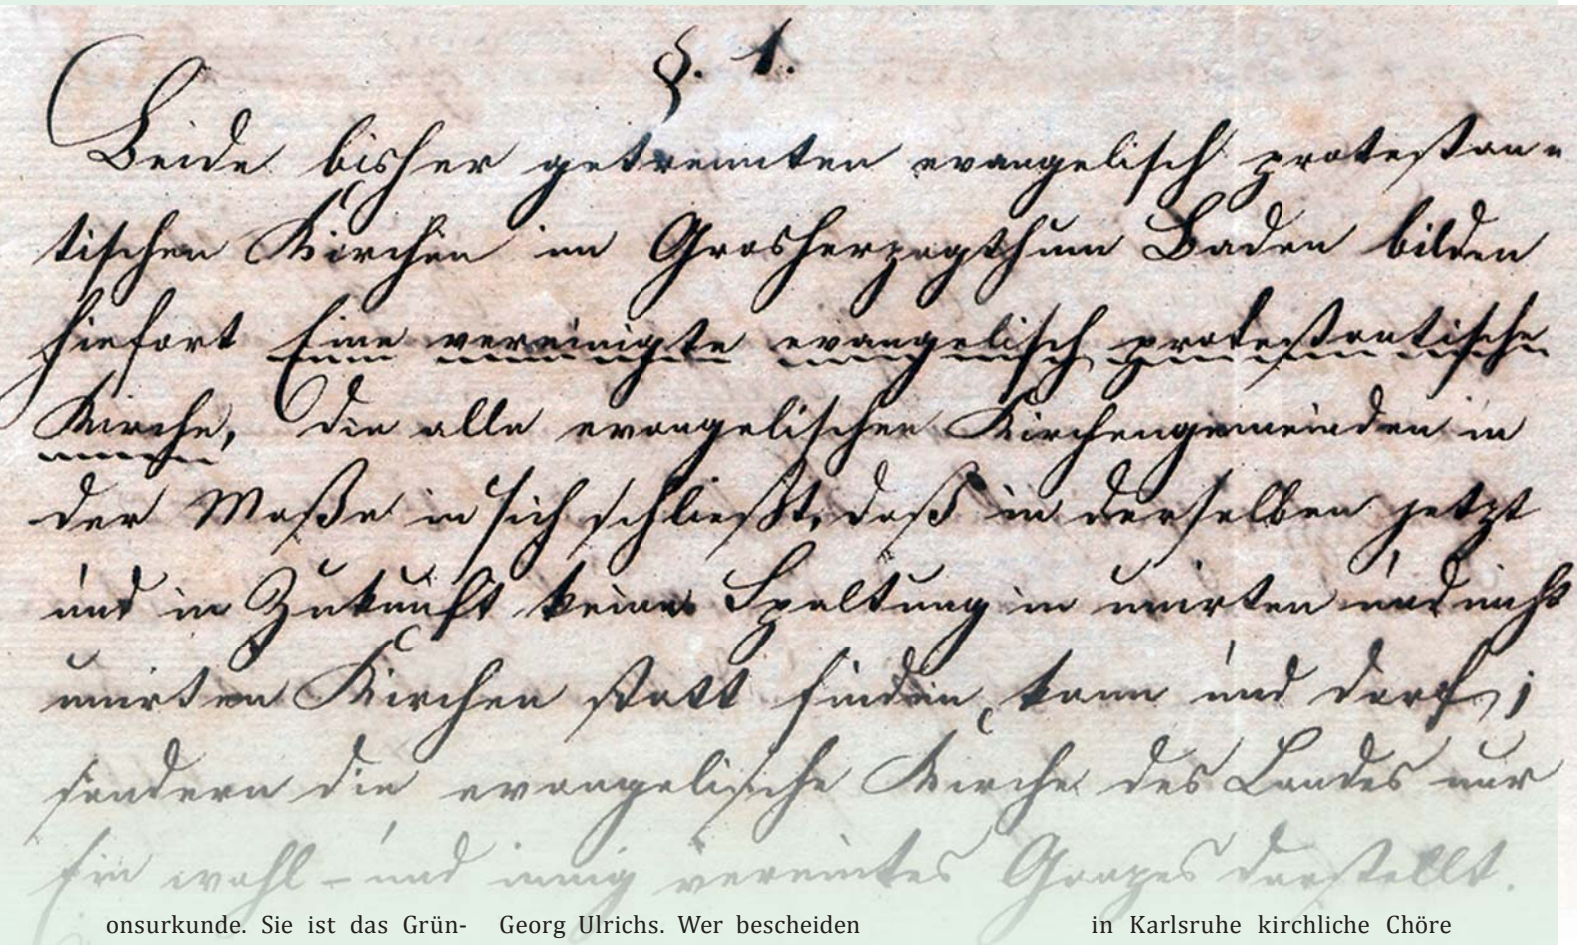 §. 1.
Beide bisher getrennten evangelisch protestan=
tischen Kirchen im Grosherzogthum Baden bilden
hinfort Eine vereinigte evangelisch protestantische
Kirche, die alle evangelischen Kirchengemeinden in
der Maße in sich schließt, daß in derselben jetzt
und in Zukunft keine Spaltung in unirten und nicht
unirten Kirchen statt finden kann und darf;
sondern die evangelische Kirche des Landes nur
Ein wohl- und innig vereintes Ganzes darstellt.
onsurkunde. Sie ist das Grün-
Georg Ulrichs. Wer bescheiden
in Karlsruhe kirchliche Chöre